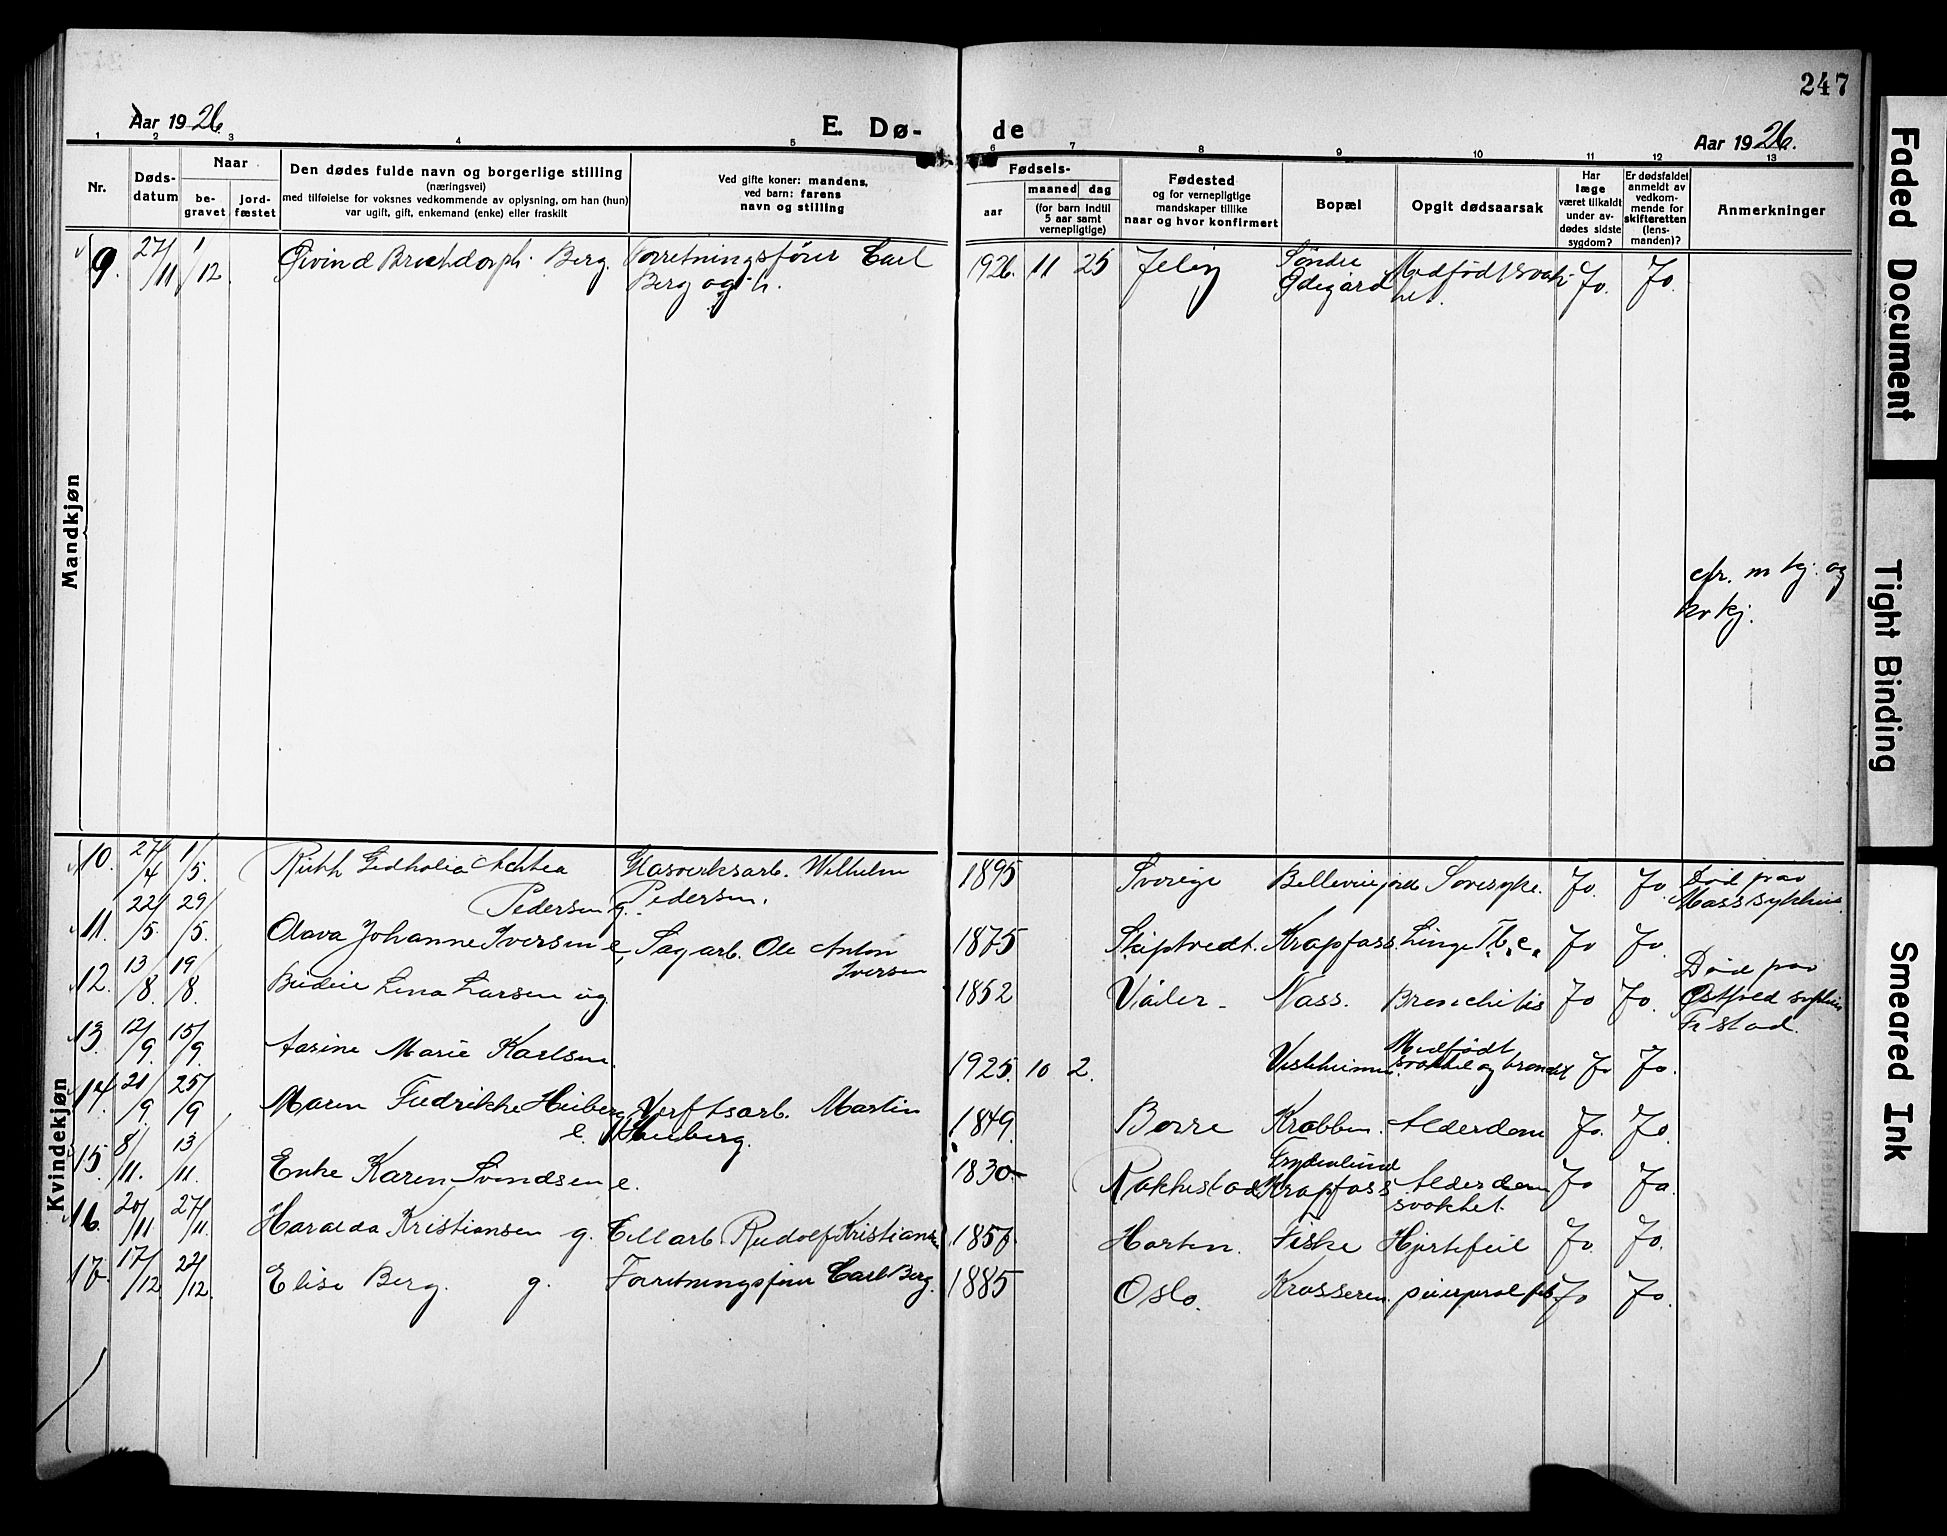 247
Aar 1926.
E. Dø-
de
Aar 1926.
1 2 3 4 5 6 7 8 9 10 11 12 13
Nr.
Døds-
datum
Naar
be-
gravet
jord-
fæstet
Den dødes fulde navn og borgerlige stilling
(næringsvei)
med tilføielse for voksnes vedkommende av oplysning, om han (hun)
var ugift, gift, enkemand (enke) eller fraskilt
Ved gifte koner: mandens,
ved barn: farens
navn og stilling
Fødsels-
aar
maaned dag
(for barn indtil
5 aar samt
vernepligtige)
Fødested
og for vernepligtige
mandskaper tillike
naar og hvor konfirmert
Bopæl
Opgit dødsaarsak
Har
læge
været tilkaldt
under av-
dødes sidste
sygdom?
Er dødsfaldet
anmeldt av
vedkom-
mende for
skifteretten
(lens-
manden)?
Anmerkninger
Mandkjøn
9. 27/11 1/12 Øivind Berg. Forretningsfører Carl
Berg og h.
1926. 11 25 Jeløy Søndre
Ødegård Medfødt svak-
het. Jo. Jo.
cfr. m kj. og
kv kj.
Kvindekjøn
10. 27/4 1/5. Ruth Achtea
Pedersen g. Glasverksarb. Wilhelm
Pedersen.
1895 Sverige Jo. Jo. Død paa
Moss sykhus
11. 22/5. 29/5. Olava Johanne Iversen e. Sagarb. Ole Anton
Iversen
1875 Skiptvedt. Krapfoss. Lunge Tb.c. Jo Jo.
12. 13/8. 19/8. Lina Larsen ug
1852 Våler - Nass. Bronchitis Jo Jo. Død paa
Østfold sykhus
Fr.stad.
13. 12/9. 15/9 Aasine Marie Karlsen.
1925. 10 2. Medfødt
svakhet og Jo Jo.
14. 21/9. 25/9 Maren Fredrikke Heiberg
e. Verftsarb. Martin
Heiberg.
1849. Borre Krabben. Alderdom Jo. Jo.
15. 8/11. 13/11. Enke Karen Svendsen e.
1830 Rakkestad Frydenlund
Krapfoss Alderdom
svakhet. Jo Ja.
16. 20/11 27/11. Haralda Kristiansen g. Cellarb. Rudolf Kristiansen
Horten. Fiske Hjertefeil Jo. Jo.
17. 17/12 22/12. Elise Berg. g. Forretningsfører Carl Berg.
1885 Oslo. Krosseren. puerperal feb. Jo Jo.
Faded Document
Tight Binding
Smeared Ink